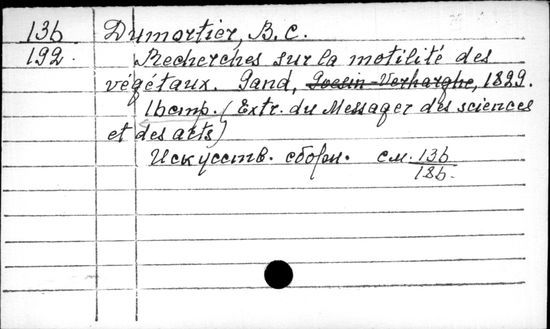 136 Dumortier, B. C.
192. Recherches sur la motilité des
végétaux. Gand, Goesin-Verhaeghe, 1829.
16 стр. (Extr. du Messager des sciences
et des arts)
Искусств. сборн. см. 136
186.